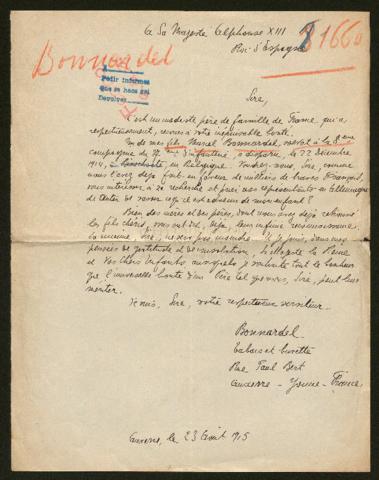 A Sa Majesté Alphonse XIII
Roi d'Espagne
81660
Bonnardel
Pedir informes
que se hace así
Devolver
Sire,
C'est un modeste père de famille de France, qui a
respectueusement, recours à votre inépuisable bonté.
Un de mes fils, Marcel Bonnardel, soldat à la 8eme
compagnie du eme d'infanterie, a disparu, le 22 décembre
1914, à en Belgique. Voulez-vous, Sire, comme
vous l'avez déjà fait en faveur de milliers de français,
vous intéresser à sa recherche et prier vos représentants en Allemagne
de tenter de savoir ce qu'est devenu mon enfant?
Bien des mères et des pères, dont vous avez déjà retrouvé
les fils chéris, vous ont dit, déjà, leur infinie reconnaissance.
La mienne, Sire, ne sera pas moindre. Et je joins, dans mes
pensées de gratitude et de vénération, Sa Majesté la Reine
et Vos chers Infants auxquels je souhaite tout le bonheur
que l'universelle bonté d'un Père tel que vous, Sire, peut leur
mériter.
Je suis, Sire, votre respectueux serviteur.
Bonnardel
tabacs et buvette
Rue Paul Bert
Auxerre - Yonne - France
Auxerre, le 23 Août 1915